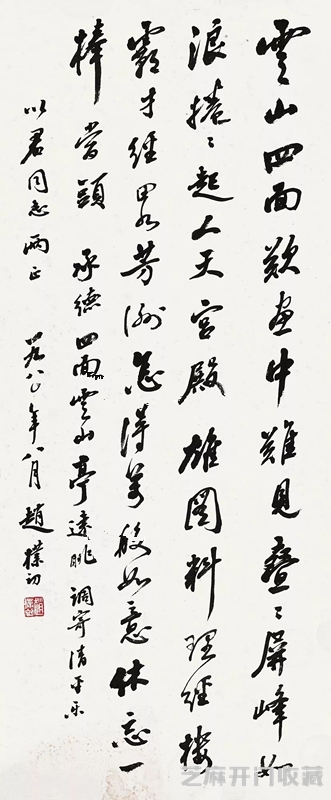 雲山四面歎畫中難見疊〻屏峰如
浪捲〻起人天宮殿雄圖料理經樓
霸才經畧芳洲怎得萬般如意休忘一
棒當頭 承德四面雲山亭遠眺調寄清平樂
以君同志兩正 一九八〇年八月 趙樸初
芝麻开门收藏网